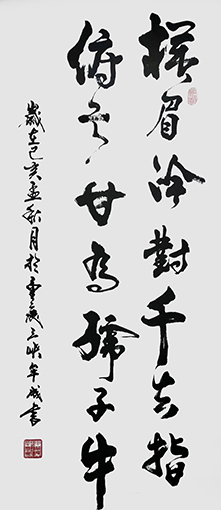 橫眉冷對千夫指
俯首甘為孺子牛
歲在己亥孟秋月於重慶三峽牟成書